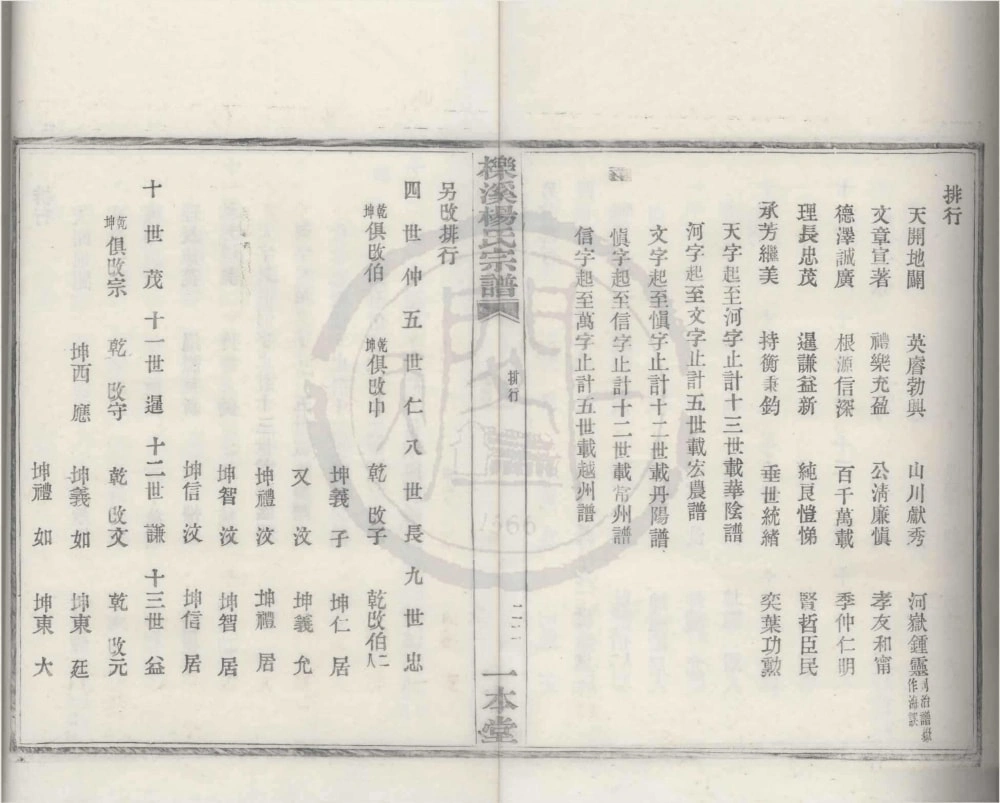 排行
天開地闢　英睿勃興　山川獻秀　河嶽鍾靈
文章宣著　禮樂充盈　公淸廉愼　孝友和甯
德澤誠廣　根源信深　百千萬載　季仲仁明
理長忠茂　暹謙益新　純良愷悌　賢哲臣民
承芳繼美　持衡秉鈞　垂世統緒　奕葉功勳
天字起至河字止計十三世載華陰譜
河字起至文字止計五世載宏農譜
文字起至愼字止計十二世載丹陽譜
愼字起至信字止計十二世載常州譜
信字起至萬字止計五世載越州譜
櫟溪楊氏宗譜
排行
二
一本堂
另改排行
四世仲　五世仁　八世長　九世忠
乾坤俱改伯　乾坤俱改中　乾改子　乾改伯二人
坤義子　坤仁居
又汶　坤義允
坤禮汶　坤禮居
坤智汶　坤智居
坤信汶　坤信居
十世茂　十一世暹　十二世謙　十三世益
乾坤俱改宗　乾改守　乾改文　乾改元
坤西應　坤義如　坤東廷
坤禮如　坤東大
1566